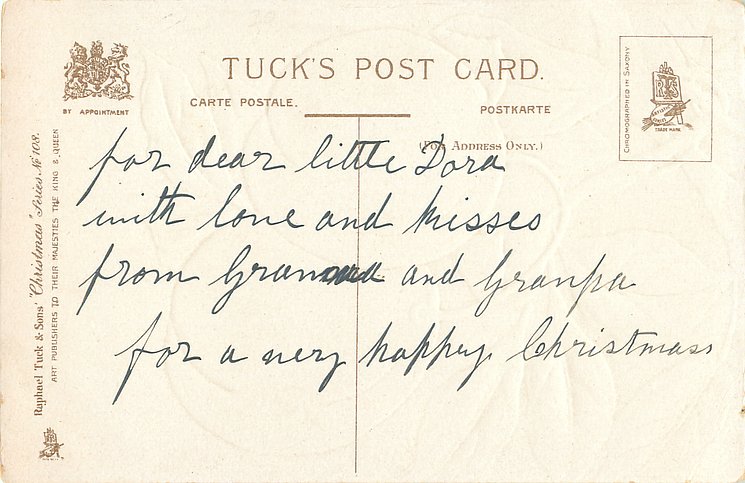 TUCK'S POST CARD.
BY APPOINTMENT
CARTE POSTALE.
POSTKARTE
(For Address Only.)
CHROMOGRAPHED IN SAXONY
TRADE MARK
Raphael Tuck & Sons' "Christmas" Series No 108.
ART PUBLISHERS TO THEIR MAJESTIES THE KING & QUEEN
for dear little Dora
with love and kisses
from and Granpa
for a very happy Christmass